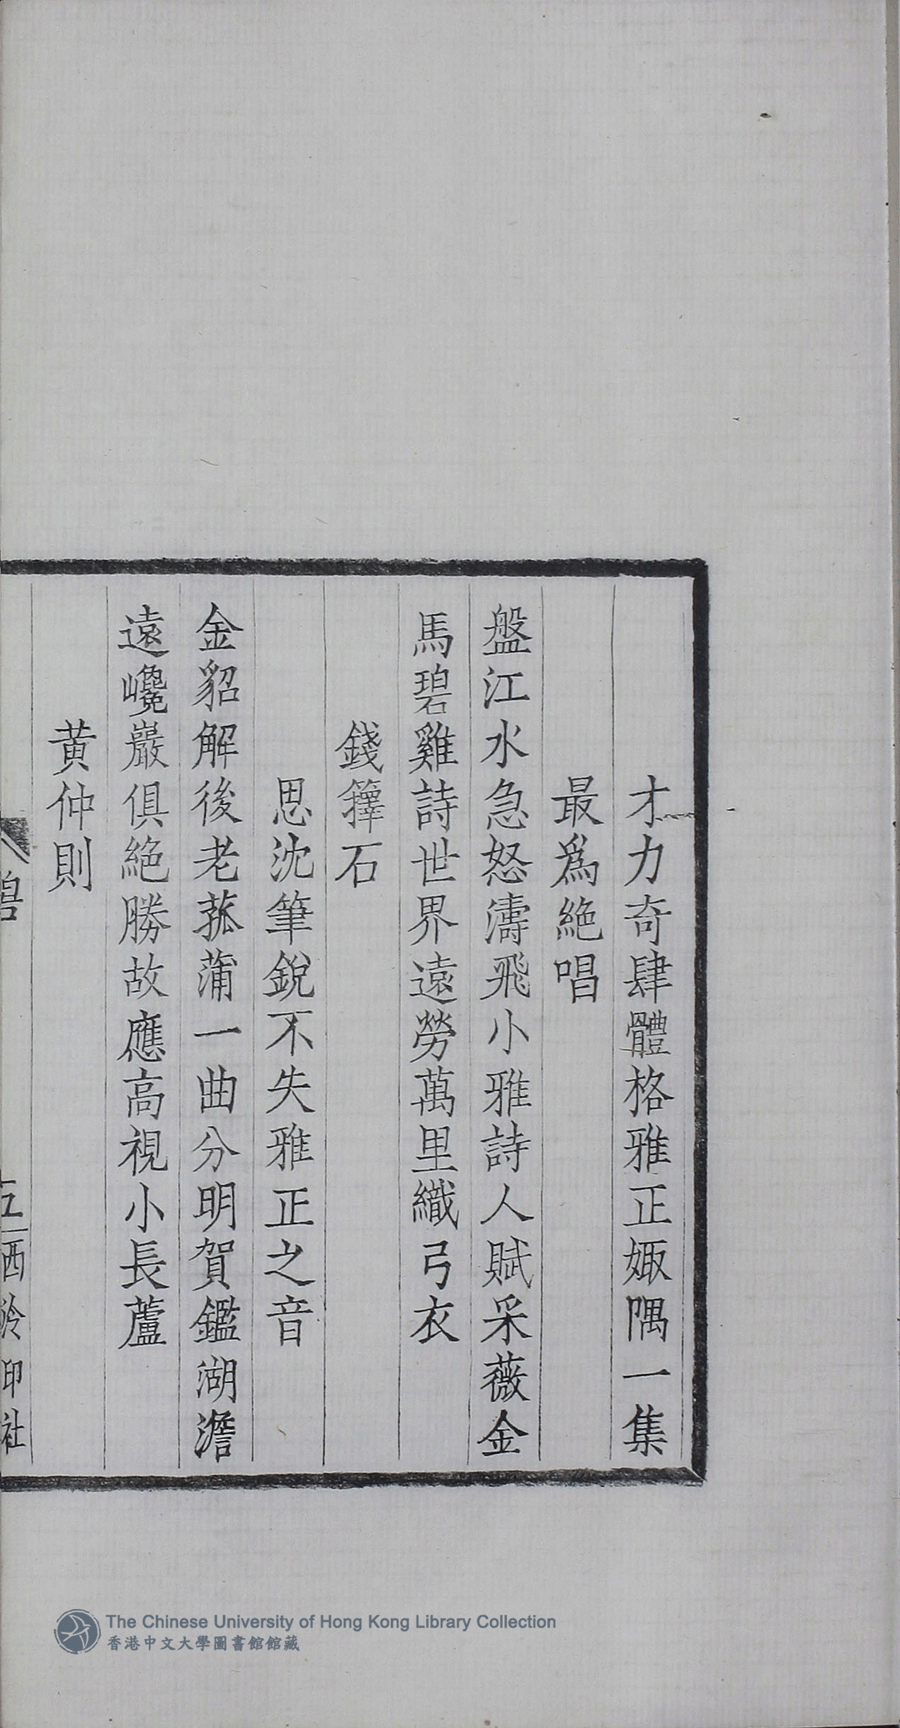 才力奇肆體格雅正娵隅一集
最爲絶唱
盤江水急怒濤飛小雅詩人賦采薇金
馬碧雞詩世界遠勞萬里織弓衣
錢籜石
思沈筆銳不失雅正之音
金貂解後老菰蒲一曲分明賀鑑湖澹
遠巉巖俱絶勝故應高視小長蘆
黄仲則
五 西泠印社
The Chinese University of Hong Kong Library Collection
香港中文大學圖書館館藏